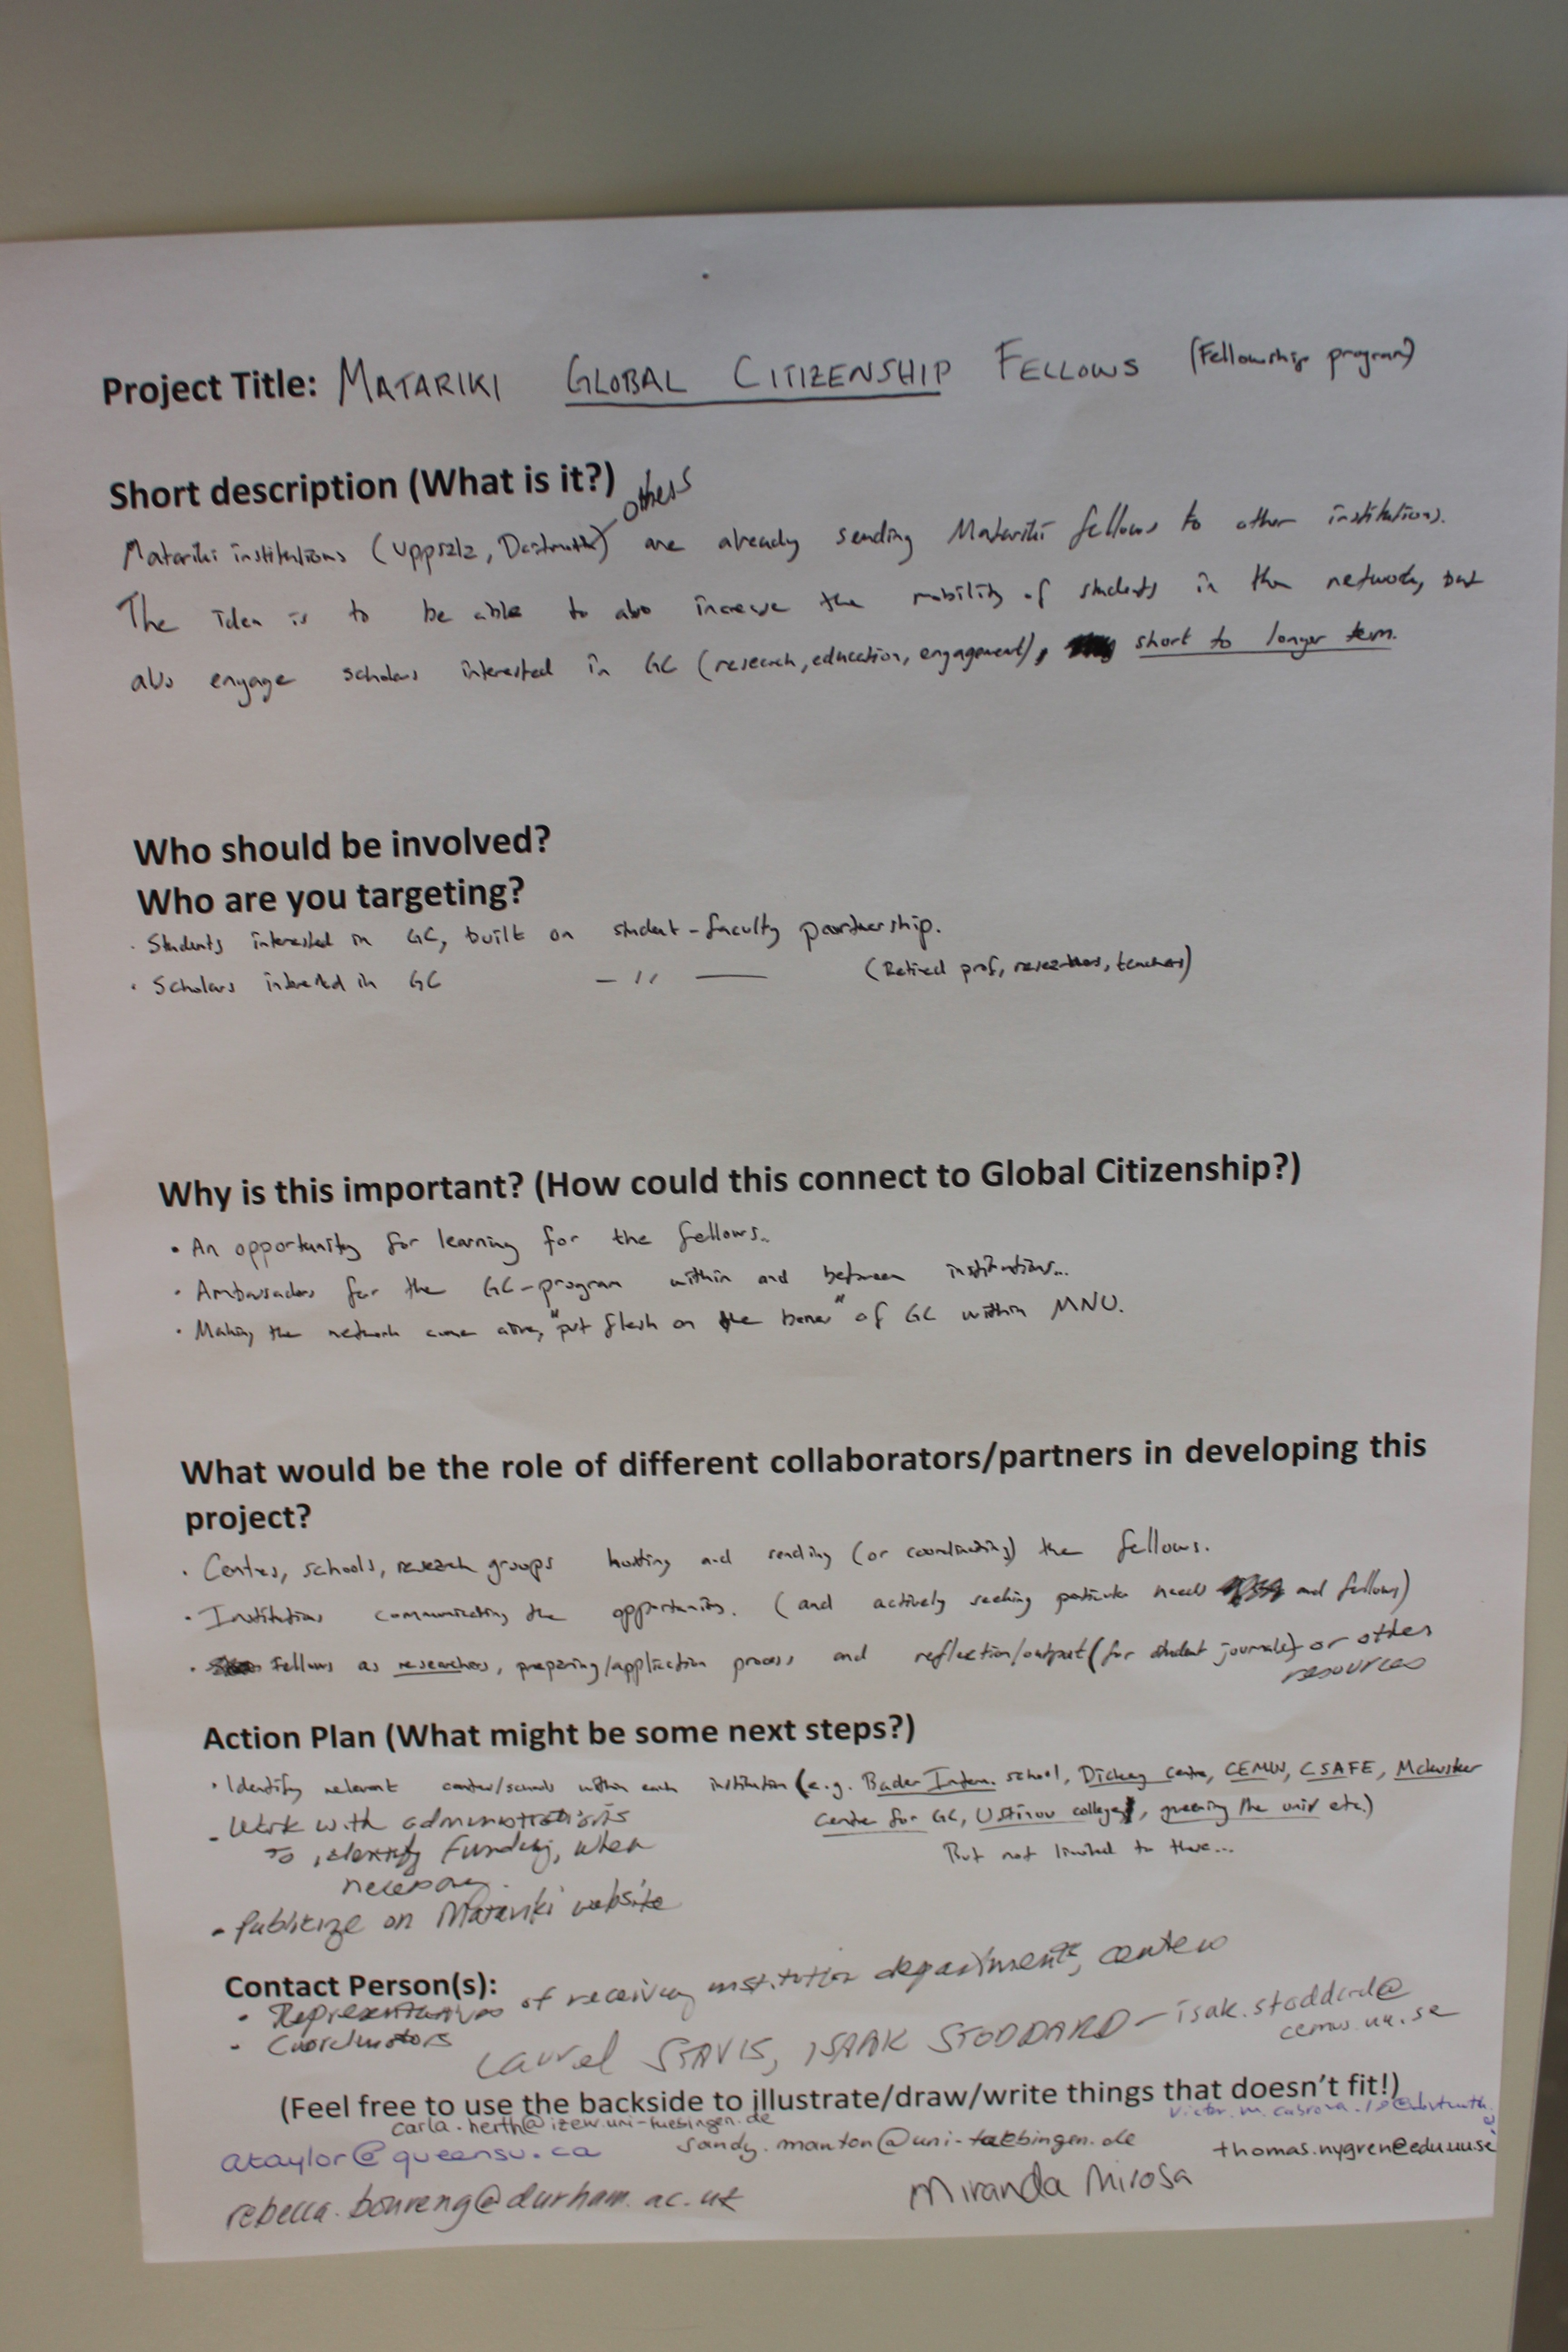 Project Title: MATARIKI GLOBAL CITIZENSHIP FELLOWS (Fellowship program)
Short description (What is it?)
others
Matariki institutions (Uppsala, Dartmouth) are already sending Matariki fellows to other institutions.
The idea is to be able to also increase the mobility of students in the network, but
also engage scholars interested in GC (research, education, engagement), short to longer term.
Who should be involved?
Who are you targeting?
· Students interested in GC, built on student-faculty partnership.
· Scholars interested in GC — 〃 — (Retired prof, researchers, teachers)
Why is this important? (How could this connect to Global Citizenship?)
• An opportunity for learning for the fellows..
· Ambassadors for the GC-program within and between institutions...
· Making the network come alive, "put flesh on the bones" of GC within MNU.
What would be the role of different collaborators/partners in developing this
project?
· Centres, schools, research groups hosting and sending (or coordinating) the fellows.
· Institutions communicating the opportunity. (and actively seeking particular needs and fellows)
· Fellows as researchers, preparing/application process and reflection/output (for student journals) or other
resources
Action Plan (What might be some next steps?)
· Identify relevant center/schools within each institution (e.g. Bader Intern. school, Dickey Centre, CEMUS, CSAFE, McCusker
Centre for GC, Ustinov college, greening the univ etc.)
- Work with administrations
to identify funding, when
But not limited to these...
necessary.
- Publicize on Matariki website
Contact Person(s):
• Representatives of receiving institution departments, centers
- Coordinators
Laurel STAVIS, ISAAK STODDARD - isak.stoddard@
cemus.uu.se
(Feel free to use the backside to illustrate/draw/write things that doesn't fit!)
carla.herth@izew.uni-tuebingen.de
ataylor@queensu.ca sandy.manton@uni-tuebingen.de thomas.nygren@edu.uu.se
Miranda Mirosa